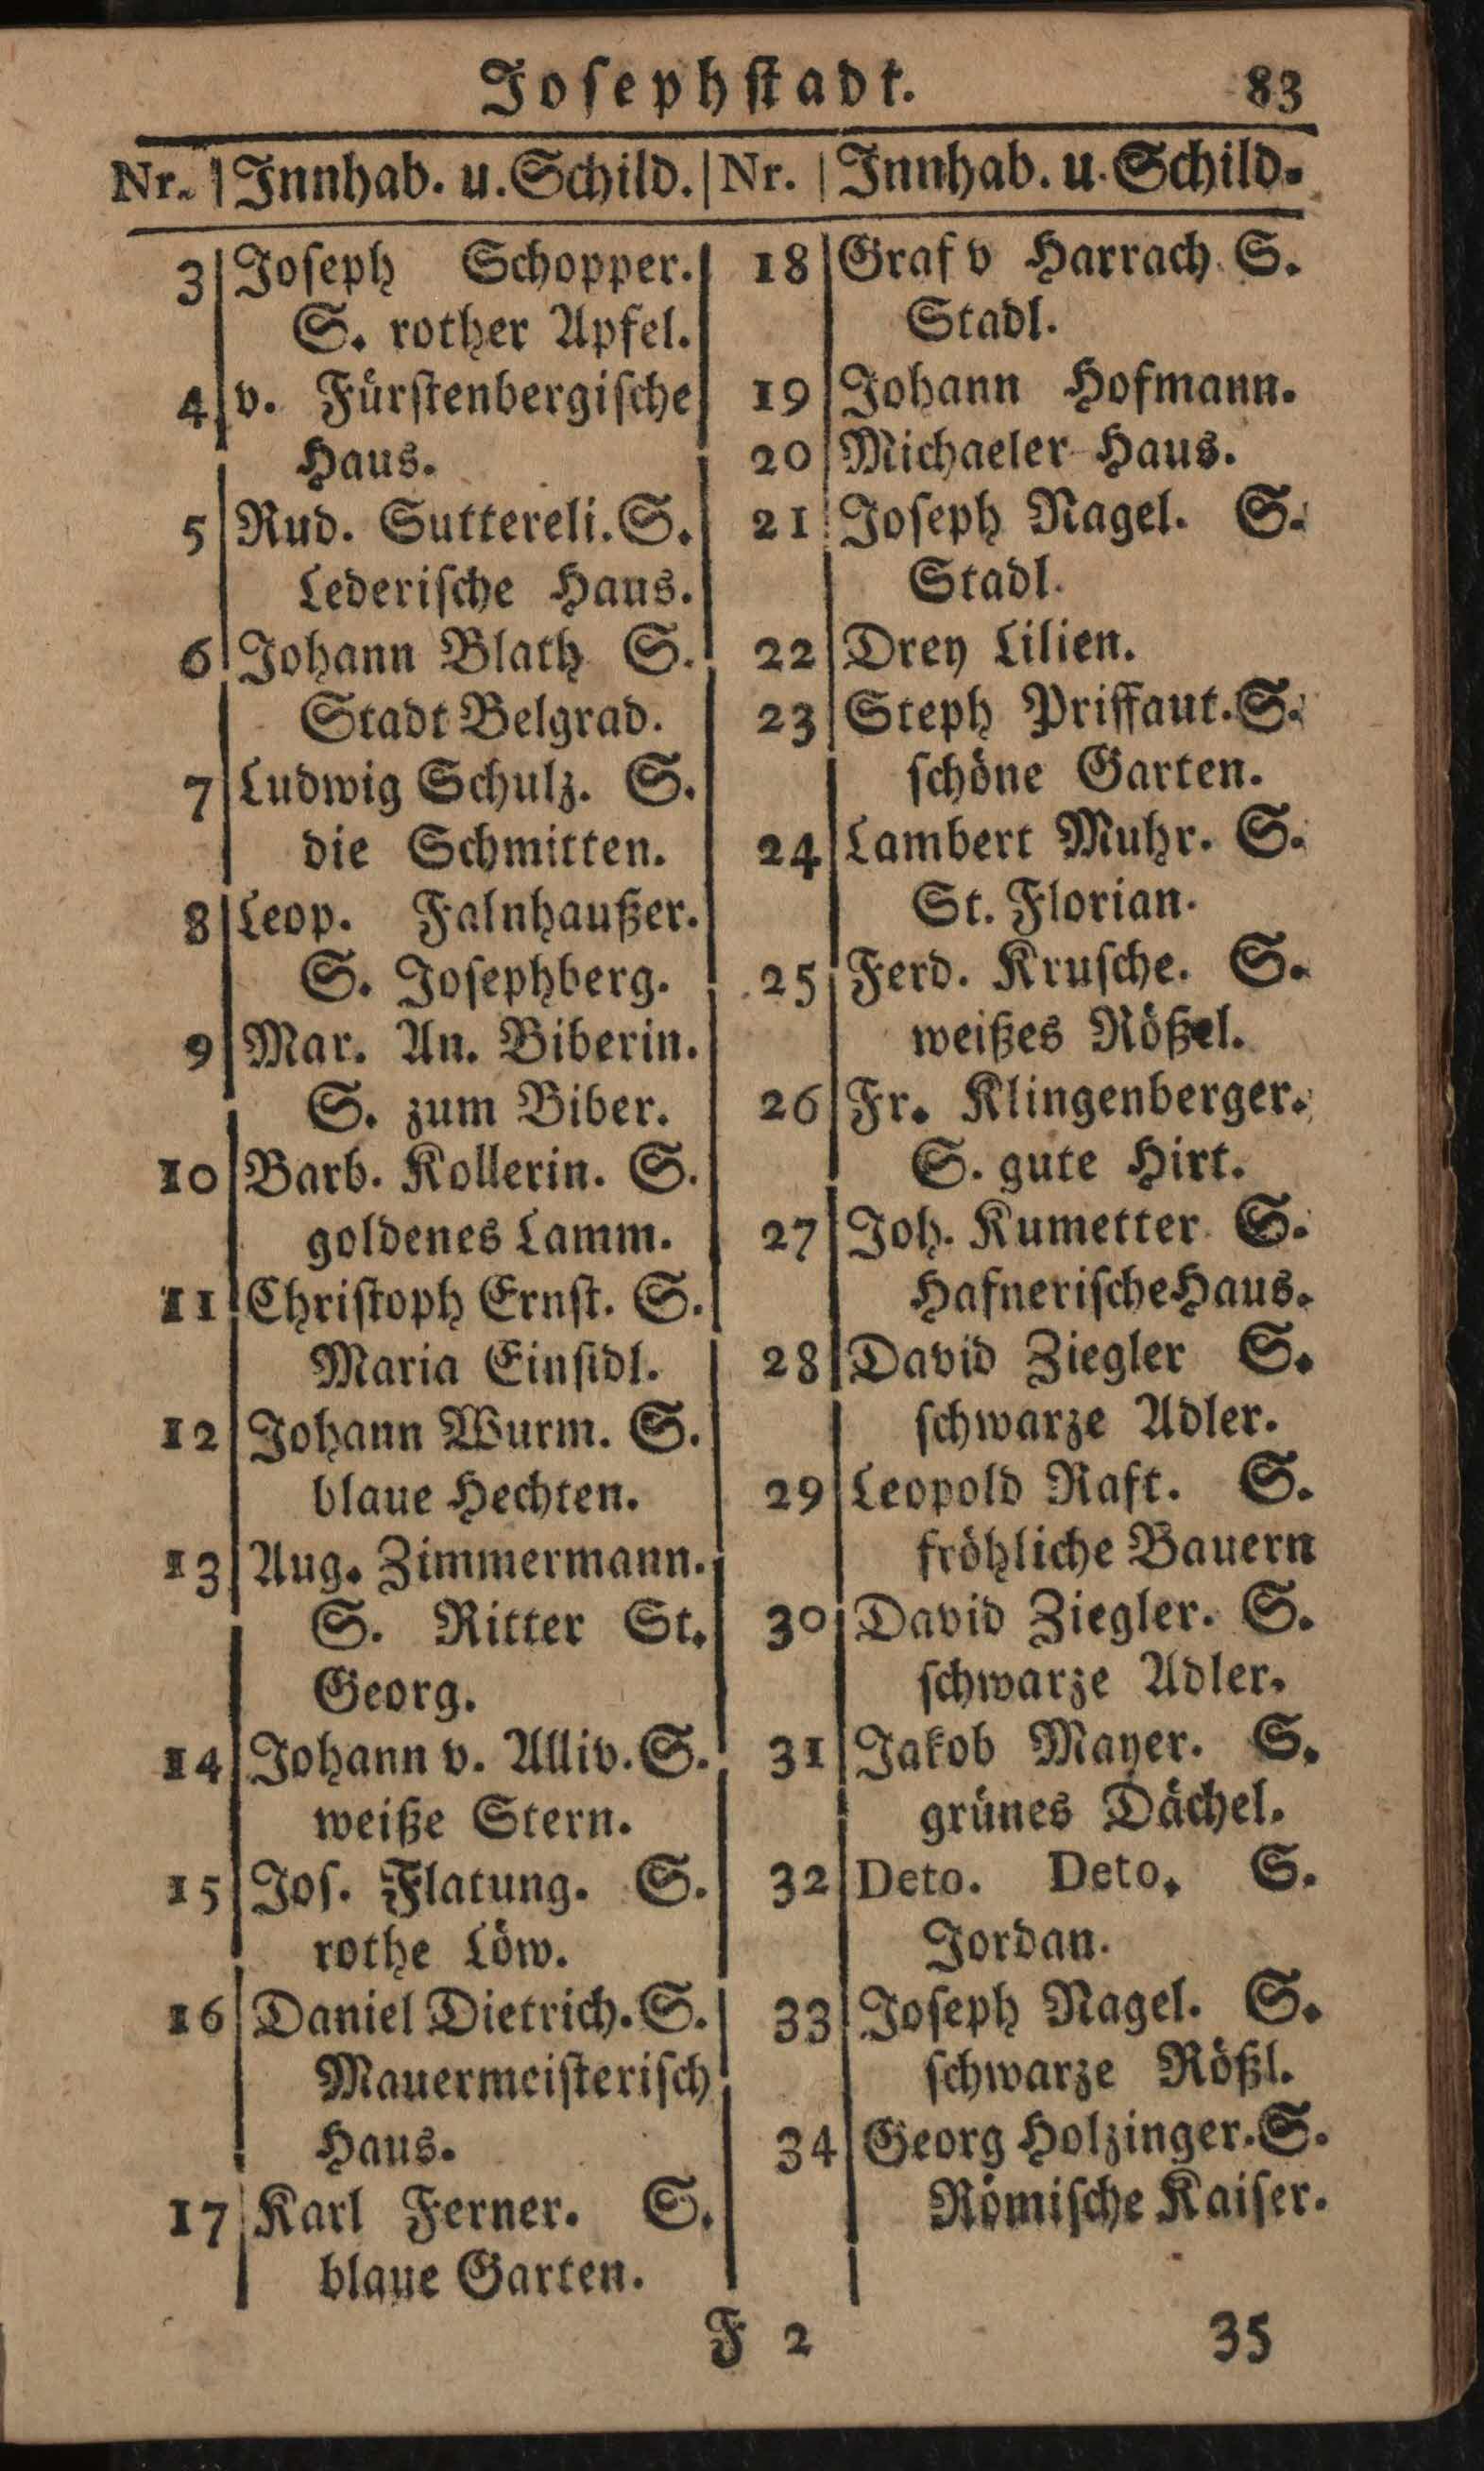 Josephstadt. 83
Nr. | Innhab. u. Schild. | Nr. | Innhab. u. Schild.
3 Joseph Schopper.
S. rother Apfel.
4 v. Fürstenbergische
Haus.
5 Rud. Suttereli. S.
Lederische Haus.
6 Johann Blath S.
Stadt Belgrad.
7 Ludwig Schulz. S.
die Schmitten.
8 Leop. Falnhaußer.
S. Josephberg.
9 Mar. An. Biberin.
S. zum Biber.
10 Barb. Kollerin. S.
goldenes Lamm.
11 Christoph Ernst. S.
Maria Einsidl.
12 Johann Wurm. S.
blaue Hechten.
13 Aug. Zimmermann.
S. Ritter St.
Georg.
14 Johann v. Alliv. S.
weiße Stern.
15 Jos. Flatung. S.
rothe Löw.
16 Daniel Dietrich. S.
Mauermeisterisch
Haus.
17 Karl Ferner. S.
blaue Garten.
18 Graf v Harrach S.
Stadl.
19 Johann Hofmann.
20 Michaeler Haus.
21 Joseph Nagel. S.
Stadl.
22 Drey Lilien.
23 Steph Priffaut. S.
schöne Garten.
24 Lambert Muhr. S.
St. Florian.
25 Ferd. Krusche. S.
weißes Rößel.
26 Fr. Klingenberger.
S. gute Hirt.
27 Joh. Kumetter S.
Hafnerische Haus.
28 David Ziegler S.
schwarze Adler.
29 Leopold Raft. S.
fröhliche Bauern
30 David Ziegler. S.
schwarze Adler.
31 Jakob Mayer. S.
grünes Dächel.
32 Deto. Deto. S.
Jordan.
33 Joseph Nagel. S.
schwarze Rößl.
34 Georg Holzinger. S.
Römische Kaiser.
F 2 35